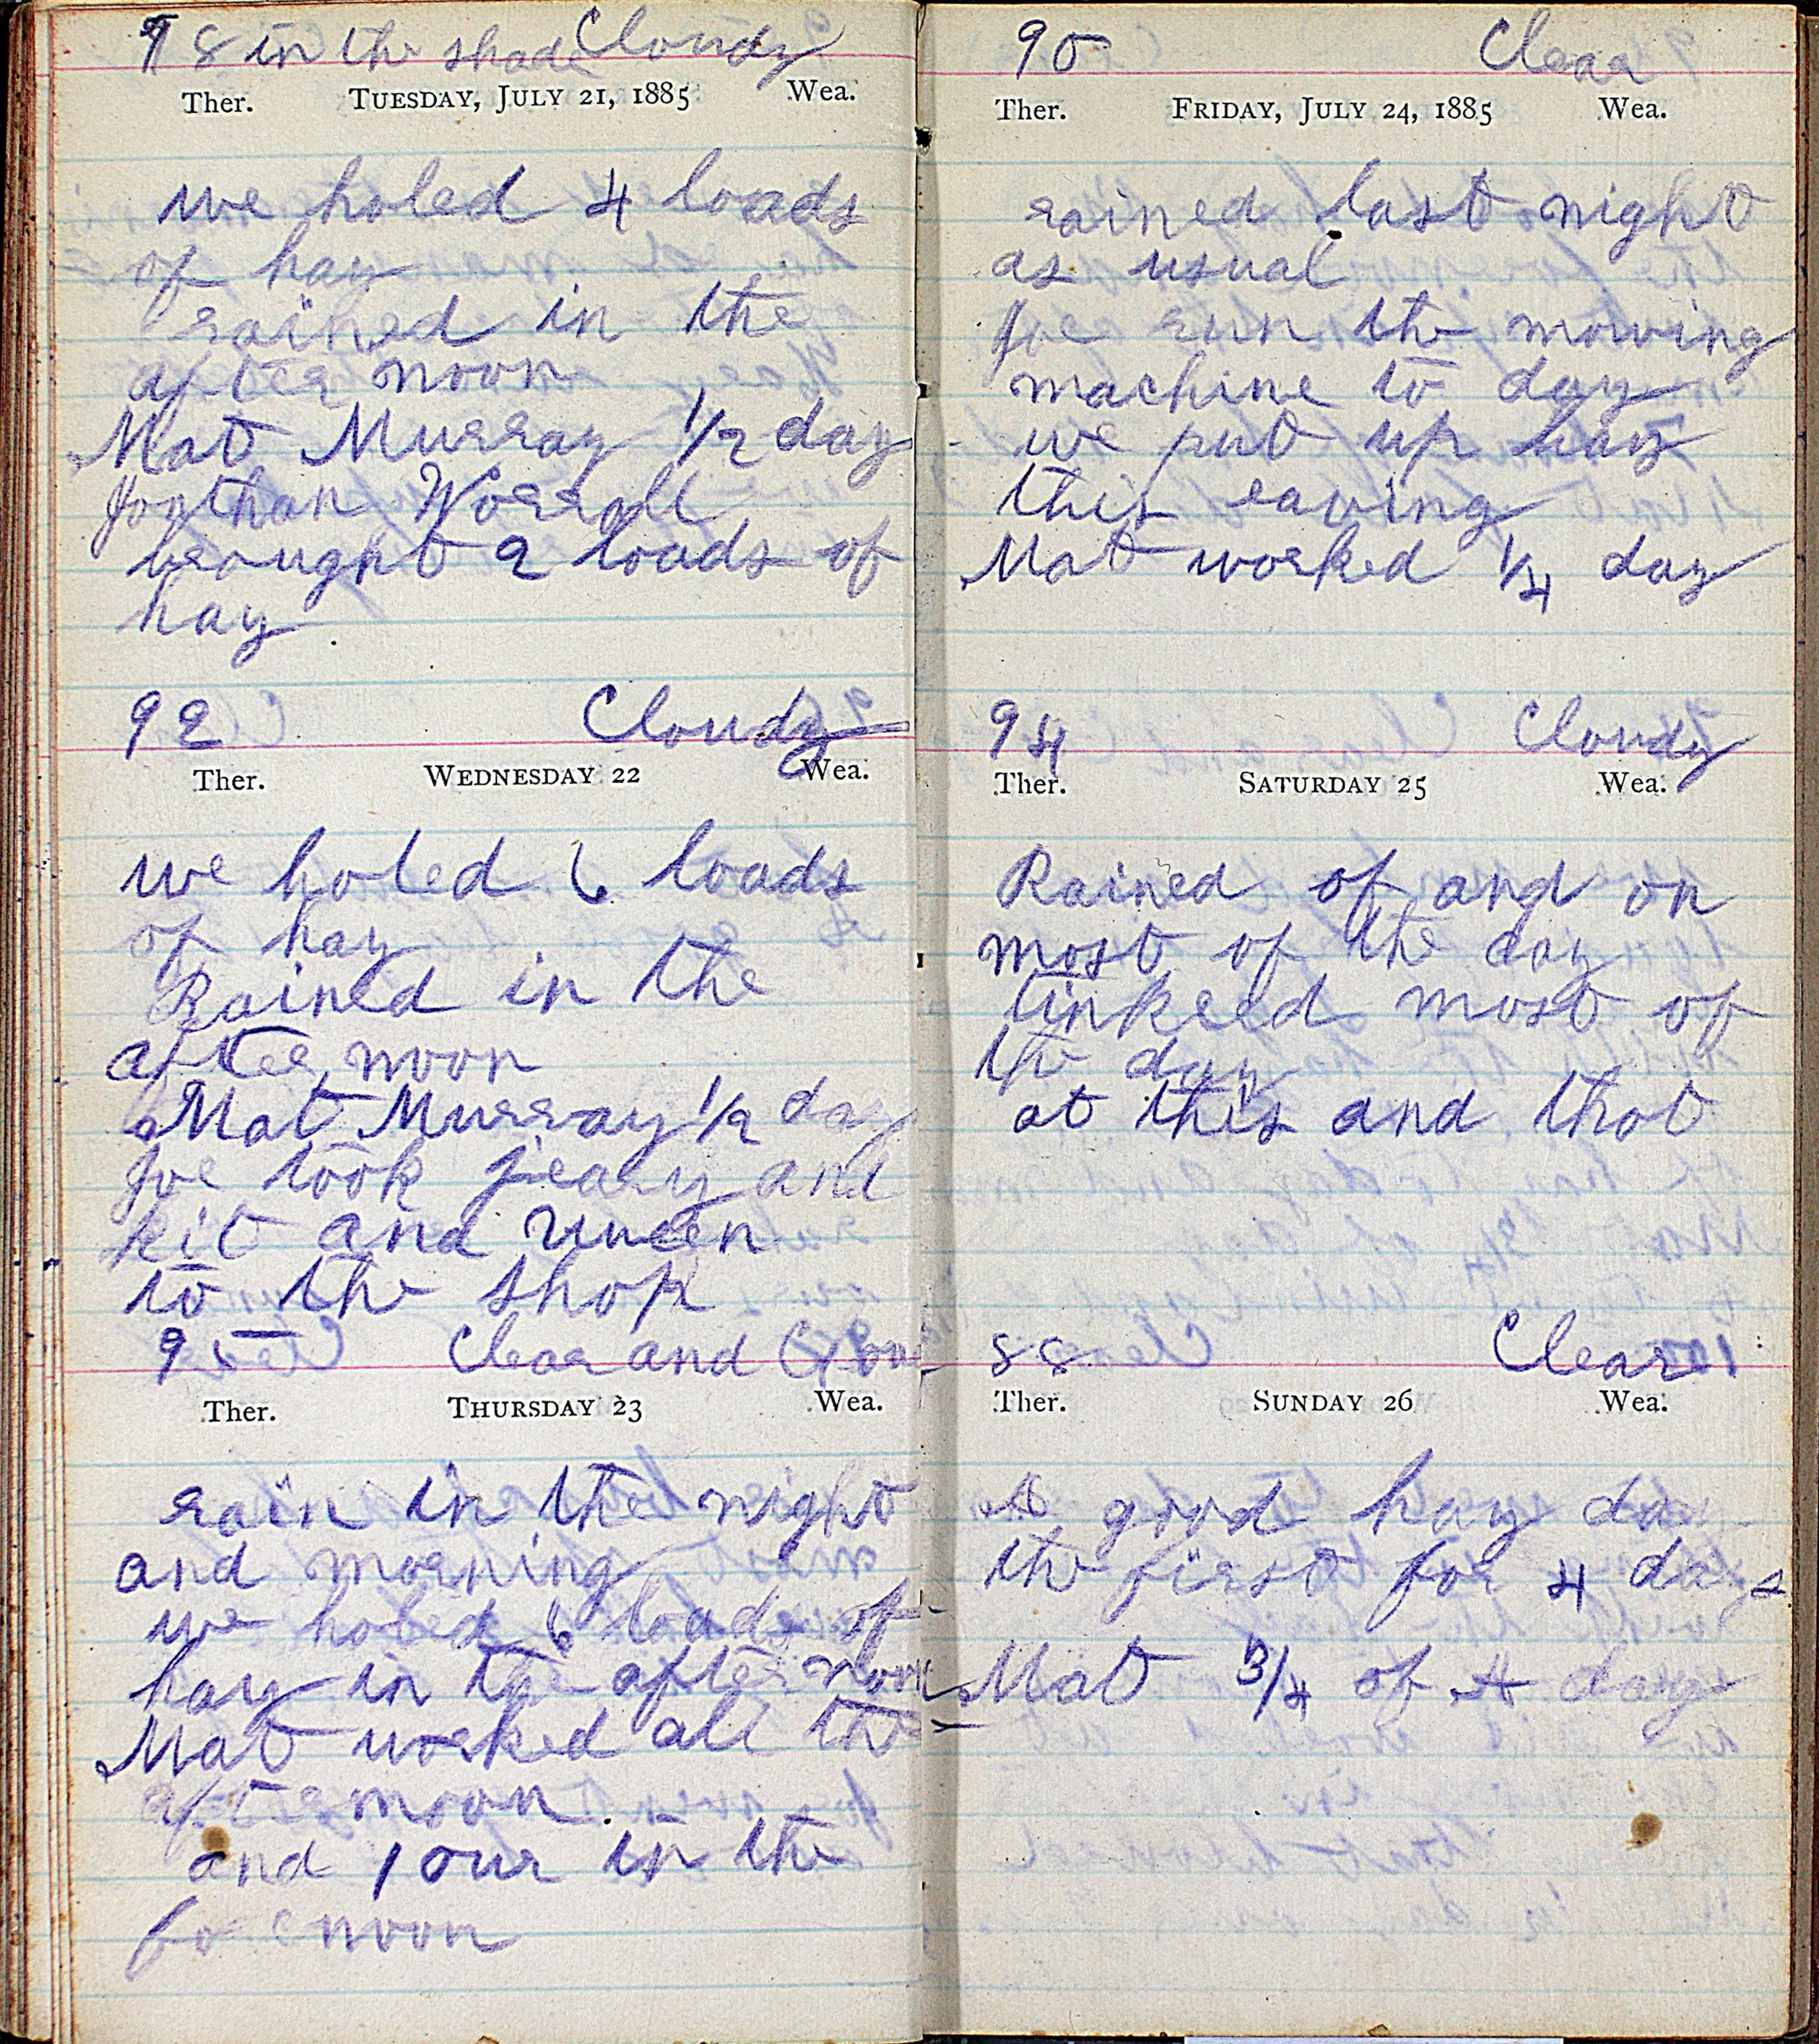 98 in the shade Cloudy
Ther. TUESDAY, JULY 21, 1885 Wea.
we holed 4 loads
of hay
rained in the
after noon
Mat Murray 1/2 day
Jonthan Worrall
brought 2 loads of
hay
92 Cloudy
Ther. WEDNESDAY 22 Wea.
we holed 6 loads
of hay
Rained in the
after noon
Mat Murray 1/2 day
Joe took and
kit and
to the shop
95 Clear and
Ther. THURSDAY 23 Wea.
rain in the night
and morning
we holed 6 loads of
hay in the after noon
Mat worked all the
afternoon
and 1 our in the
forenoon
90 Clear
Ther. FRIDAY, JULY 24, 1885 Wea.
rained last night
as usual
Joe run the mowing
machine to day
we put up hay
this eaving
Mat worked 1/4 day
94 Cloudy
Ther. SATURDAY 25 Wea.
Rained of and on
most of the day
tinkeed most of
the day
at this and that
88 Clear
Ther. SUNDAY 26 Wea.
A good hay day
the first for 4 days
Mat 3/4 of A day